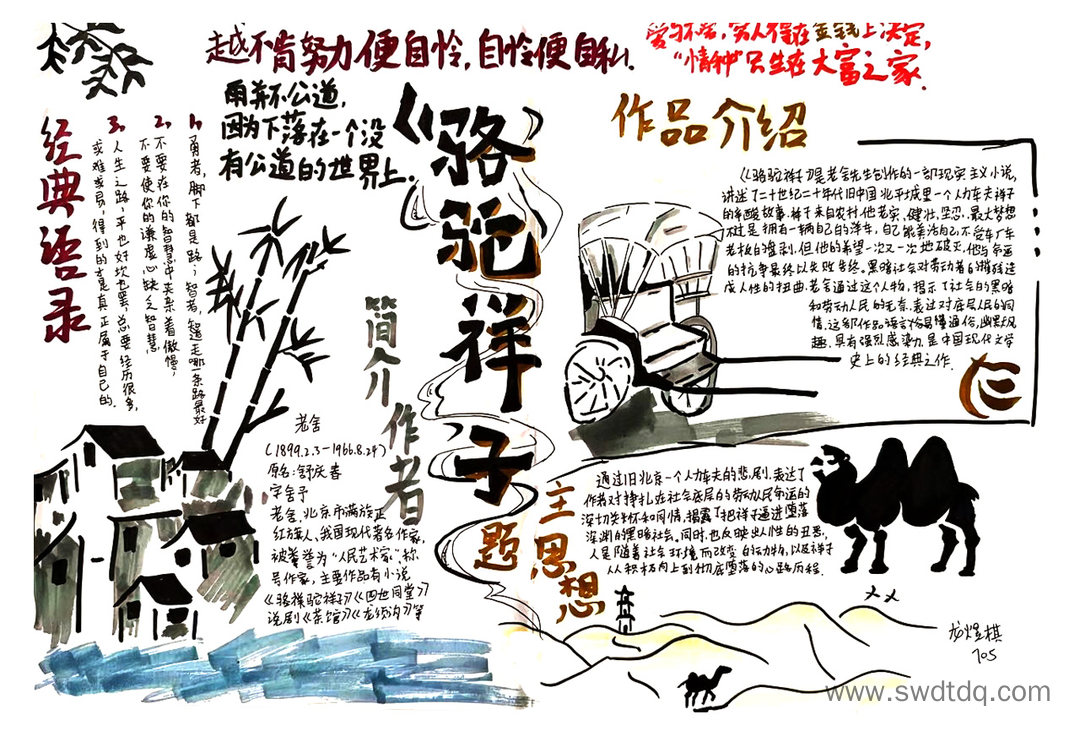 越不肯努力便自怜，自怜便自私.
爱与不爱，穷人得在金钱上决定，
“情种”只生在大富之家.
雨并不公道，
因为下落在一个没
有公道的世界上.
《骆驼祥子》
经典语录
1、勇者，脚下都是路；智者，知道走哪一条路最好
2、不要在你的智慧中夹杂着傲慢，
不要使你的谦虚心缺乏智慧
3、人生之路，平也好坎也罢，总要经历很多，
或难或易，得到的才是真正属于自己的.
简介
作者
老舍
(1899.2.3—1966.8.24)
原名:舒庆春
字舍予
老舍，北京市满族正
红旗人、我国现代著名作家，
被誉为“人民艺术家”，称
号作家，主要作品有小说
《骆驼祥子》《四世同堂》
说剧《茶馆》《龙须沟》等
作品介绍
《骆驼祥子》是老舍先生创作的一部现实主义小说，
讲述了二十世纪二十年代旧中国北平城里一个人力车夫祥子
的辛酸故事.祥子来自农村.他老实、健壮、坚忍.最大梦想
不过是拥有一辆自己的洋车，自己能养活自己，不受车厂车
老板的盘剥.但他的希望一次又一次地破灭，他与命运
的抗争最终以失败告终.黑暗社会对劳动者的摧残造
成人性的扭曲.老舍通过这个人物，揭示了社会的黑暗
和劳动人民的无奈.表达对底层人民的同
情.这部作品语言俗易懂通俗，幽默风
趣.具有强烈感染力.是中国现代文学
史上的经典之作.
主题思想
通过旧北京一个人力车夫的悲剧，表达了
作者对挣扎在社会底层的劳动人民命运的
深切关怀和同情，揭露了把祥子逼进堕落
深渊的黑暗社会，同时，也反映出人性的丑恶，
人是随着社会环境而改变的动物，以及祥子
从积极向上到彻底堕落的心路历程.
龙煜棋
705
www.swdtdq.com